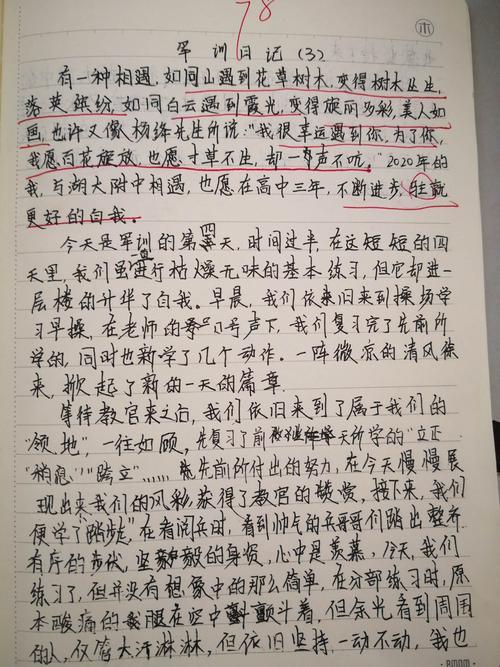 78
木
军训日记(3)
有一种相遇,如同山遇到花草树木,变得树木丛生,
落英缤纷,如同白云遇到霞光,变得旖丽多彩,美人如
画,也许又像杨绛先生所说:"我很幸运遇到你,为了你,
我愿百花旋放,也愿寸草不生,却一声不吭。"2020年的
我,与湖大附中相遇,也愿在高中三年,不断进步,铸就
更好的自我。
今天是军训的第四天,时间过半,在这短短的四
天里,我们虽进行枯燥无味的基本练习,但它却进一
层楼的升华了自我。早晨,我们依来旧来到操场学
习早操,在老师的口号声下,我们复习完了先前所
学的,同时也新学了几个动作。一阵微凉的清风徐
来,掀起了新的一天的篇章.
等待教官来之后,我们依旧来到了属于我们的
"领地",一往如顾,先复习了前天所学的"立正"
"稍息""跨立"......先前所付出的努力,在今天慢慢展
现出来,我们的风彩获得了教官的赞赏,接下来,我们
便学了"踏步",在看阅兵时,看到帅气的兵哥哥们踏出整齐
有序的步伐,坚毅的身姿,心中是羡慕,今天,我们
练习了,但并没有想象中的那么简单,在分部练习时,原
本酸痛的我腿在空中颤斗着,但余光看到周围
的人,仅管大汗淋淋,但依旧坚持,一动不动,我也